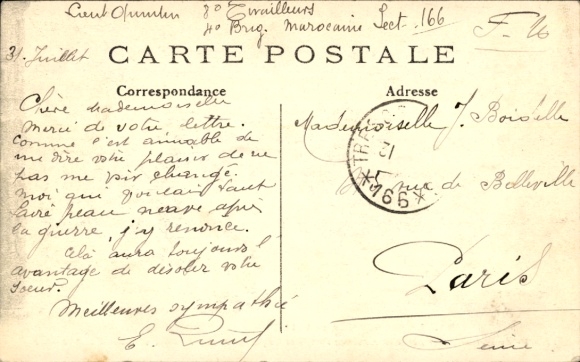 Lieut 8e Tirailleurs
4e Brig. Marocaine Sect. 166
F. M
31 Juillet
CARTE POSTALE
Correspondance
Adresse
Chère Mademoiselle
Merci de votre lettre.
Comme c'est aimable de
me dire votre plaisir de ne
pas me voir changé.
Moi qui voulais tant
faire peau neuve après
la guerre j'y renonce.
Celà aura toujours l'
avantage de désoler votre
soeur.
Meilleures sympathie
E.
Mademoiselle J.
rue de Belleville
Paris
Seine
TRESOR
*166*